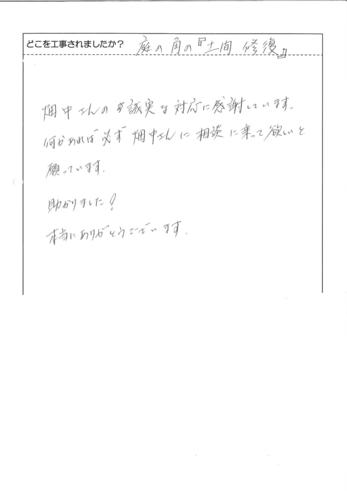 どこを工事されましたか? 庭の角の『土間 修復』
畑中さんの誠実な対応に感謝しています。
何かあれば必ず畑中さんに相談に来て欲しいと
願っています。
助かりました!
本当にありがとうございます。